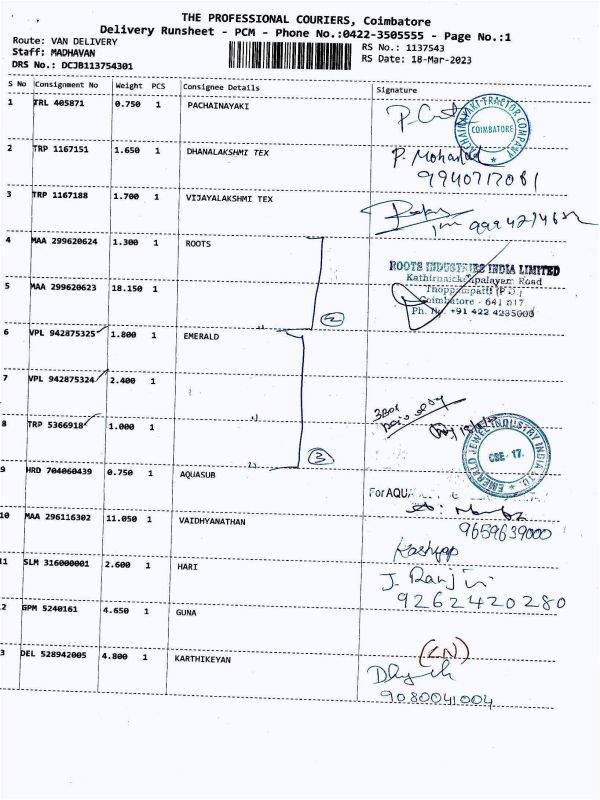 THE PROFESSIONAL COURIERS, Coimbatore
Delivery Runsheet - PCM - Phone No.:0422-3505555 - Page No.:1
Route: VAN DELIVERY
RS No.: 1137543
Staff: MADHAVAN
RS Date: 18-Mar-2023
DRS No.: DCJB113754301
S No Consignment No Weight PCS Consignee Details Signature
1 TRL 405871 0.750 1 PACHAINAYAKI
PACHAINAYAKI TRACTOR COMPANY
COIMBATORE
2 TRP 1167151 1.650 1 DHANALAKSHMI TEX P. Mohan
9940717081
3 TRP 1167188 1.700 1 VIJAYALAKSHMI TEX
4 MAA 299620624 1.300 1 ROOTS
ROOTS INDUSTRIES INDIA LIMITED
Kathirnaickenpalayam Road
5 MAA 299620623 18.150 1
Thoppampatti (P.O.)
Coimbatore - 641 017
Ph. No. +91 422 4235000
2
6 VPL 942875325 1.800 1 EMERALD
7 VPL 942875324 2.400 1
8 TRP 5366918 1.000 1
EMERALD JEWEL INDUSTRY INDIA LTD
CBE - 17.
3
9 HRD 704060439 0.750 1 AQUASUB
For AQUA
10 MAA 296116302 11.050 1 VAIDHYANATHAN
9659639000
Kashyap
11 SLM 316000001 2.600 1 HARI J. Ranjini
9262420280
2 GPM 5240161 4.650 1 GUNA
(LN)
3 DEL 528942005 4.800 1 KARTHIKEYAN
9080041004